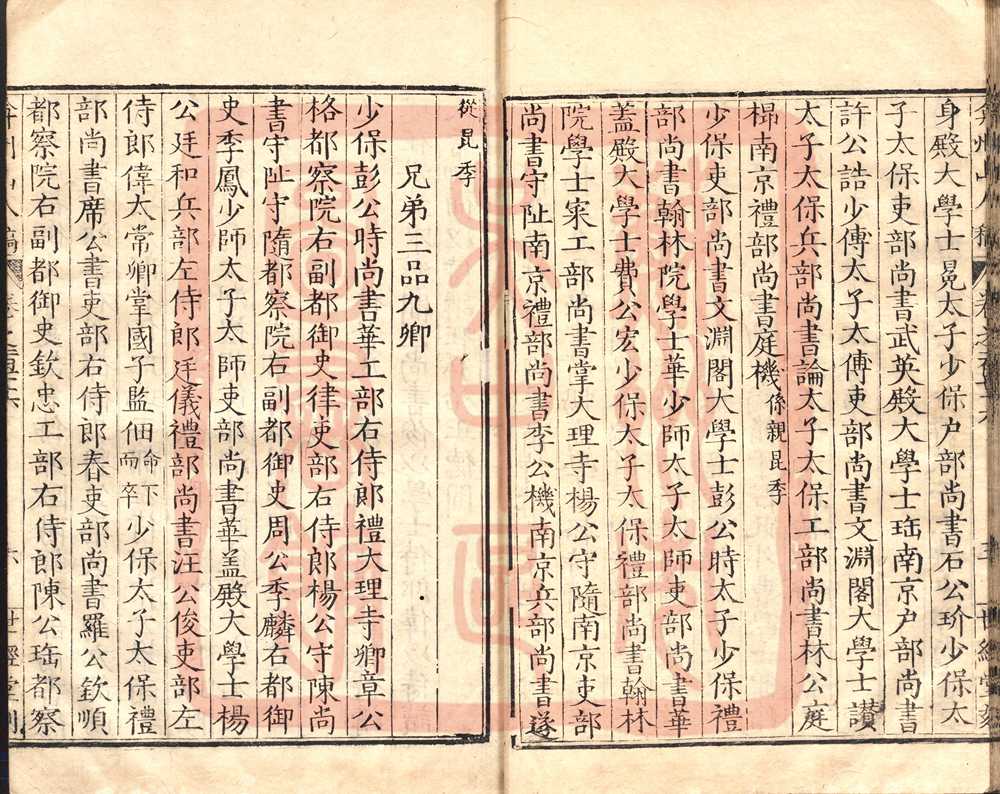 身殿大學士晃太子少保户部尚書石公玠少保太
子太保吏部尚書武英殿大學士珤南京户部尚書
許公誥少傅太子太傅吏部尚書文淵閣大學士讃
太子太保兵部尚書論太子太保工部尚書林公庭
㭿南京禮部尚書庭機係親昆季
少保吏部尚書文淵閣大學士彭公時太子少保禮
部尚書翰林院學士華少師太子太師吏部尚書華
蓋殿大學士費公宏少保太子太保禮部尚書翰林
院學士寀工部尚書掌大理寺楊公守隨南京吏部
尚書守阯南京禮部尚書李公機南京兵部尚書遂
從昆季
兄弟三品九卿
少保彭公時尚書華工部右侍郎禮大理寺卿章公
格都察院右副都御史律吏部右侍郎楊公守陳尚
書守阯守隨都察院右副都御史周公季麟右都御
史季鳳少師太子太師吏部尚書華蓋殿大學士楊
公廷和兵部左侍郎廷儀禮部尚書汪公俊吏部左
侍郎偉太常卿掌國子監佃命下而卒少保太子太保禮
部尚書席公書吏部右侍郎春吏部尚書羅公欽順
都察院右副都御史欽忠工部右侍郎陳公珤都察